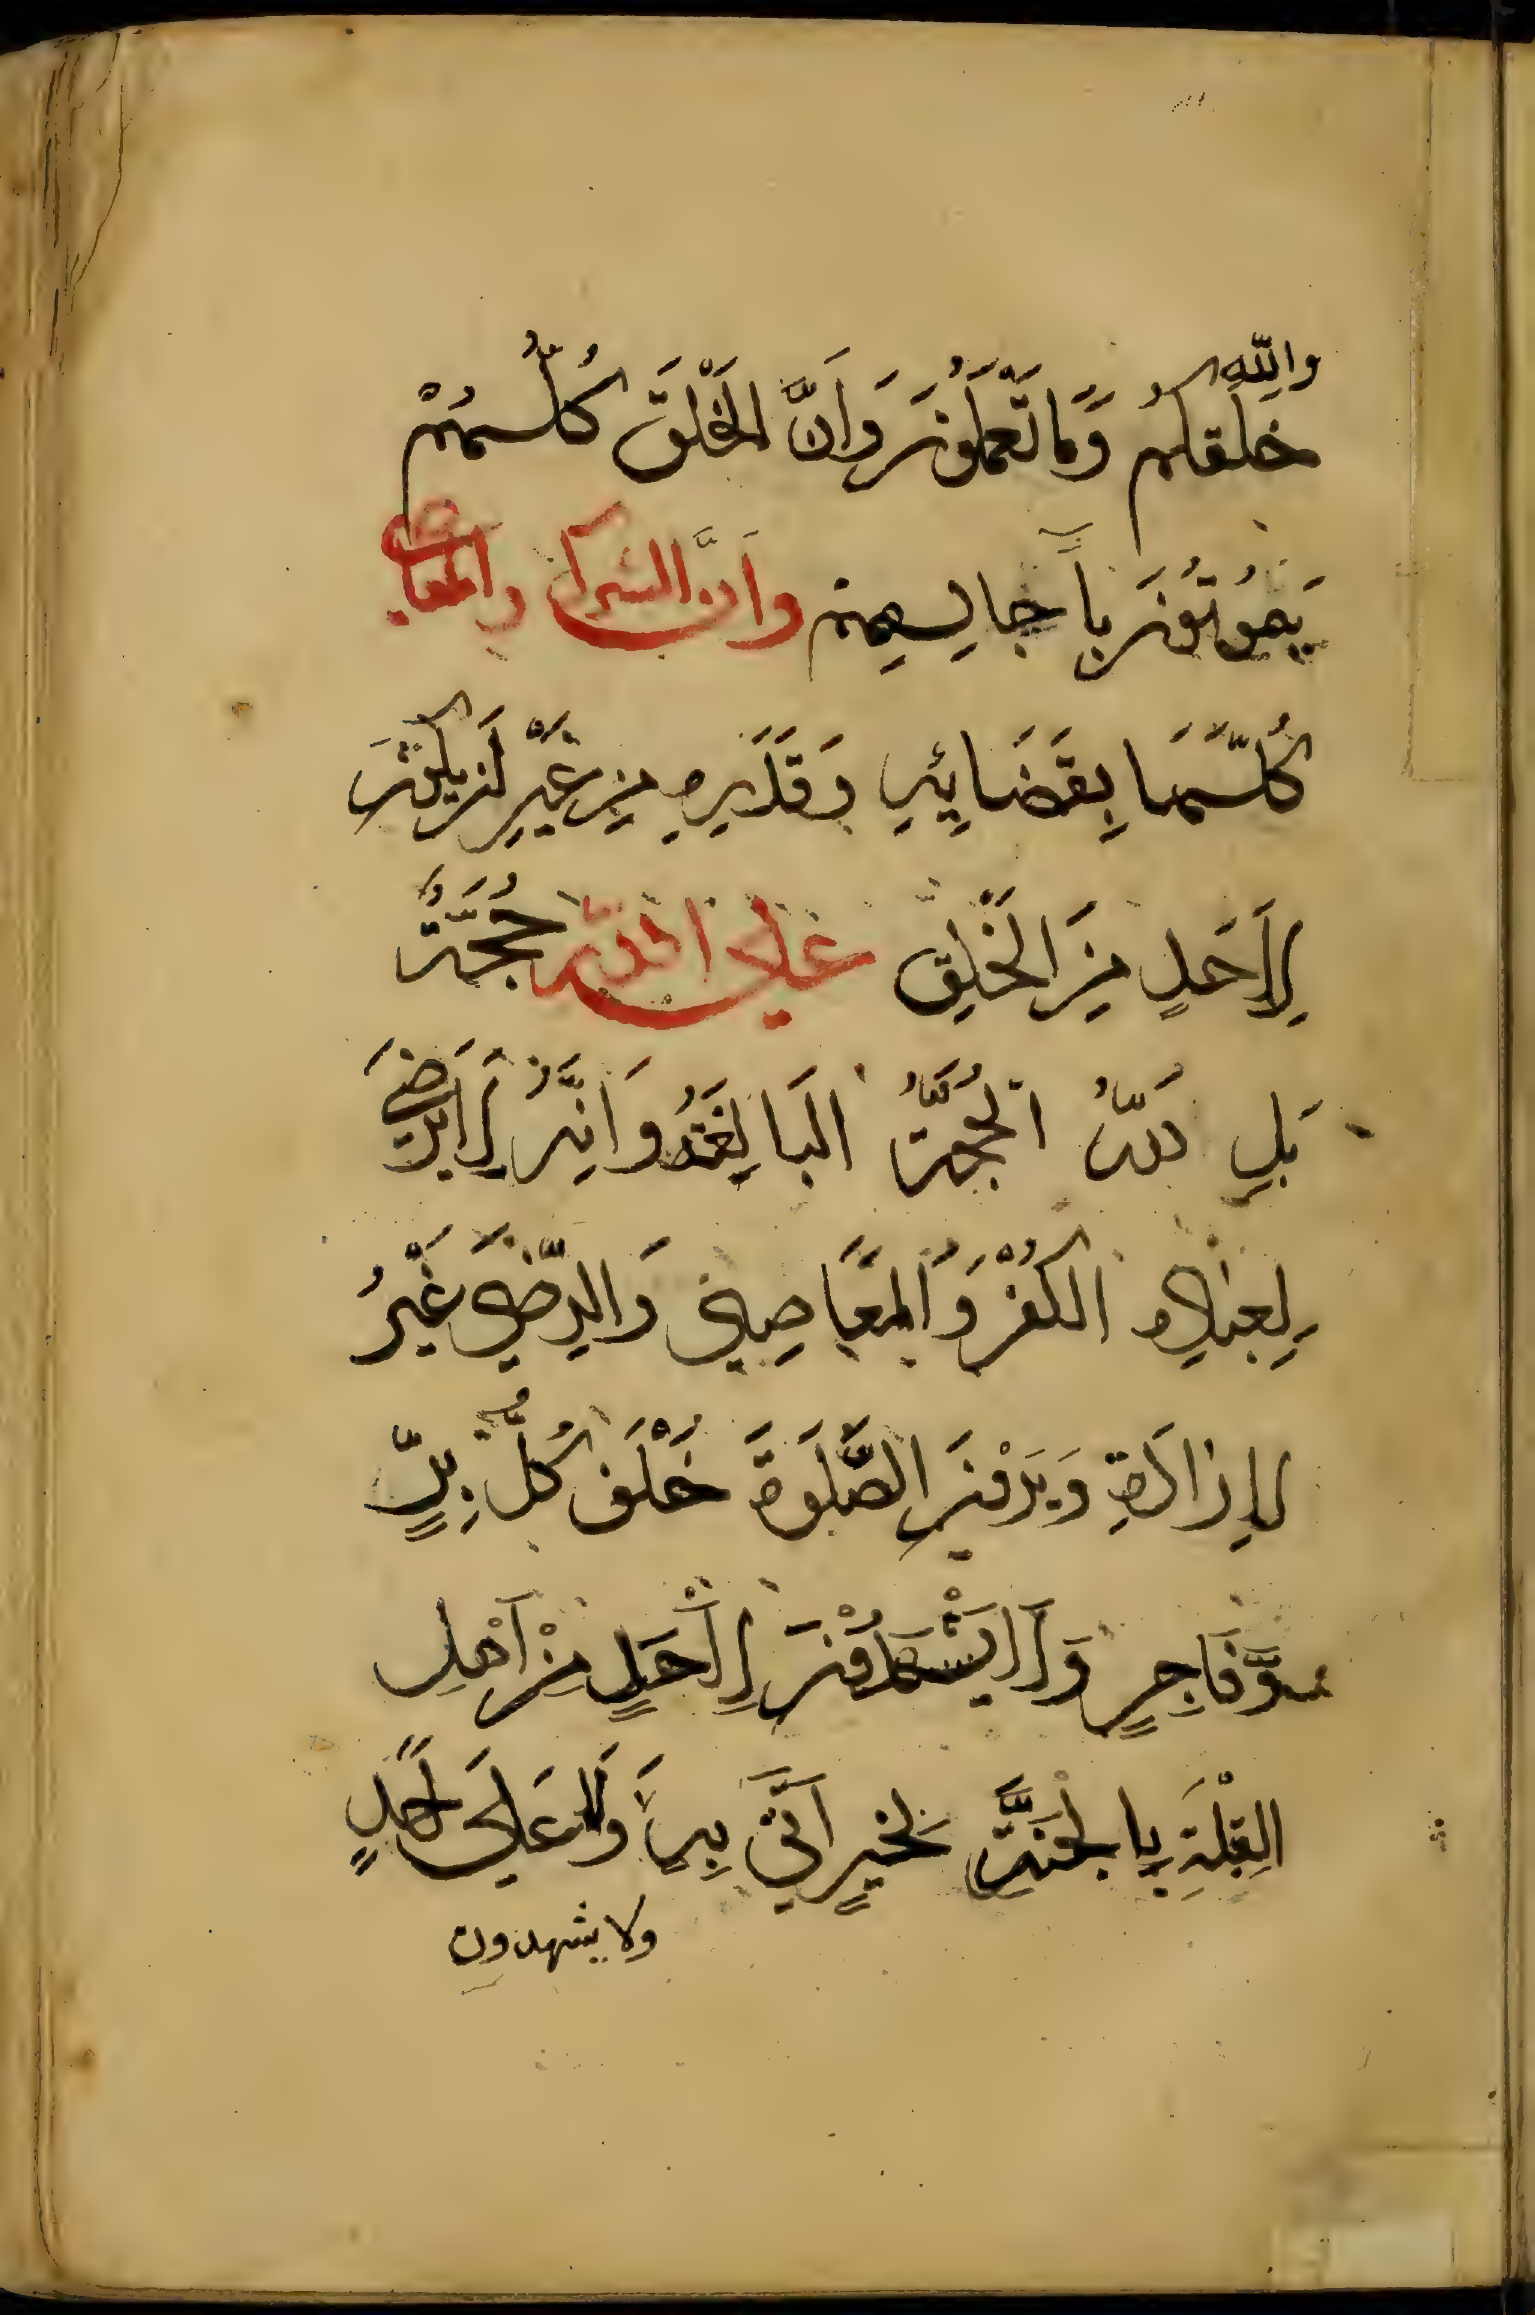 والله
خَلَقَكُم وَمَا تَعْمَلُونَ وَاَنَّ الْخَلْقَ كُلُّهُمْ
يَمُوتُونَ بِاَجَالِهِم وَاَنَّ الشرك والمعاصي
كُلَّهَا بِقَضَائِهِ وَقَدَرِهِ مِن غَيْرِ اَن يَكُونَ
لِاَحَدٍ مِنَ الْخَلْقِ على الله حُجَّةٌ
بَل للهِ الْحُجَّةُ الْبَالِغَةُ وَاَنَّهُ لَا يَرْضَى
لِعِبَادِهِ الْكُفْرَ وَالْمَعَاصِي وَالرِّضَى غَيْرُ
الْاِرَادَةِ وَيَرَوْنَ الصَّلَوةَ خَلْفَ كُلِّ بِرٍّ
وَفَاجِرٍ وَلَا يَشْهَدُونَ لِاَحَدٍ مِنْ اَهْلِ
الْقِبْلَةِ بِالْجَنَّةِ لِخَيْرٍ اَتَى بِهِ وَلَا عَلَى اَحَدٍ
ولا يشهدون